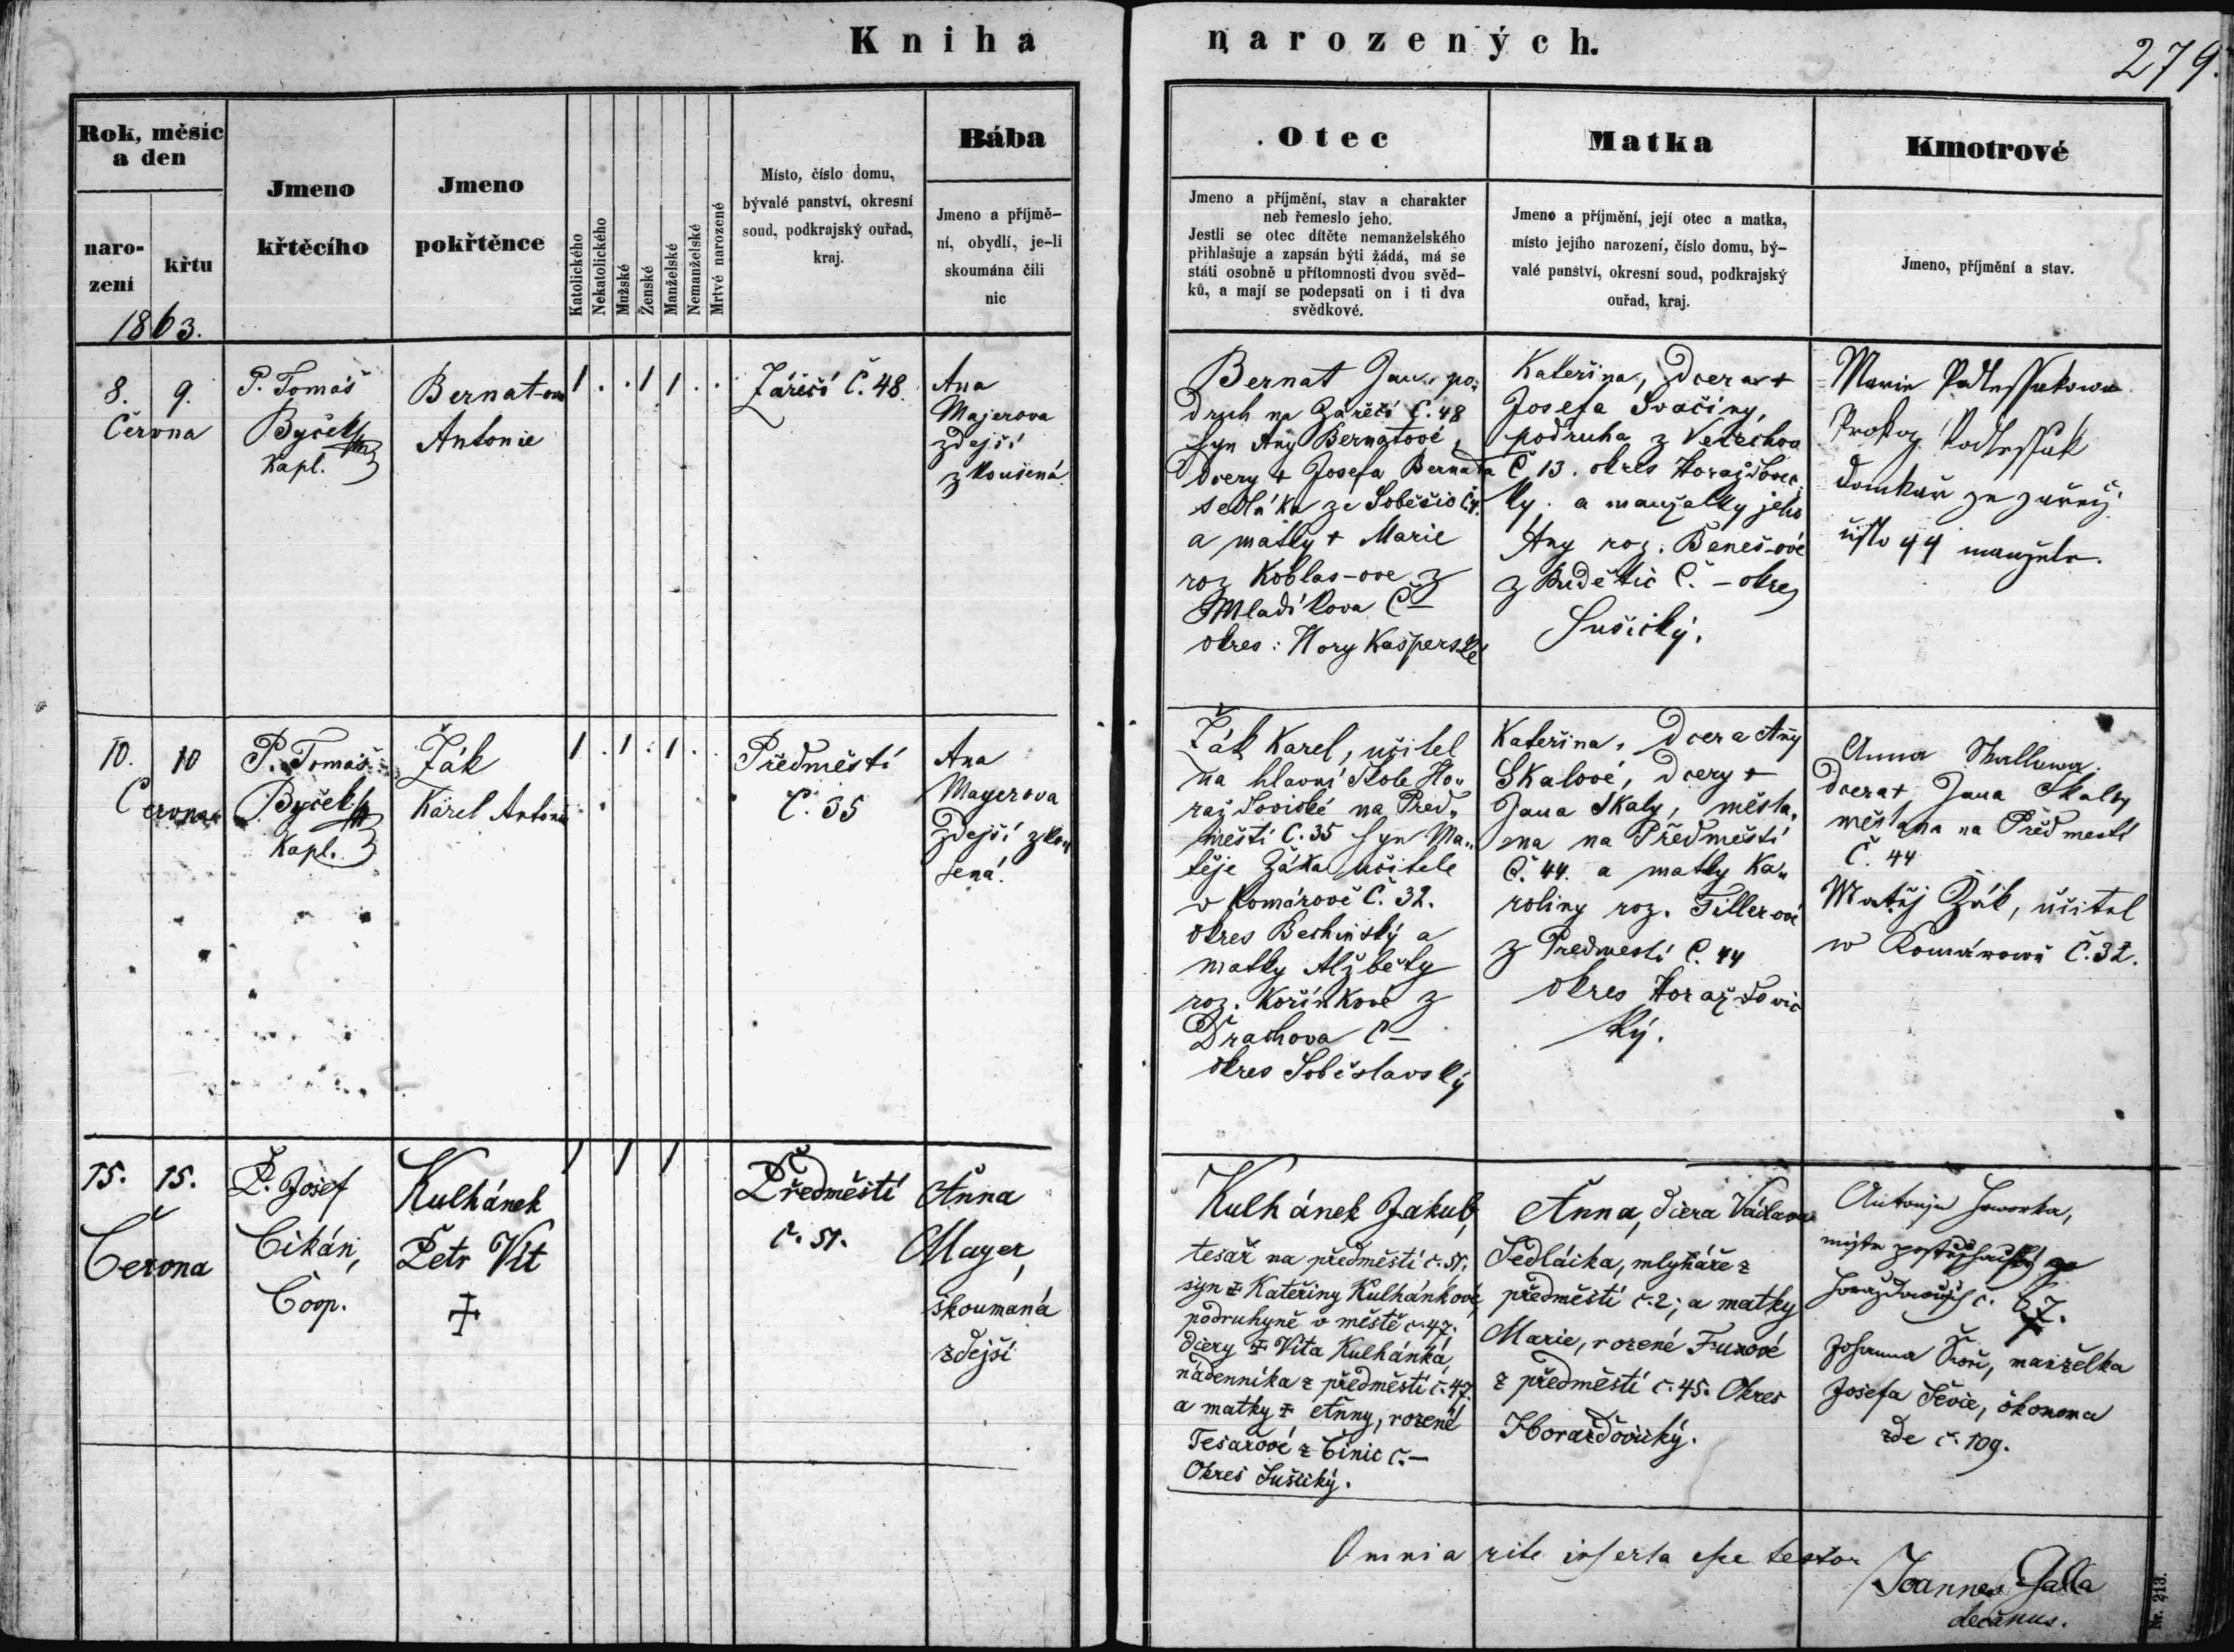 Kniha narozených.
279.
Rok, měsíc
a den
naro-
zení
křtu
1863.
Jmeno
křtěcího
Jmeno
pokřtěnce
Katolického
Nekatolického
Mužské
Ženské
Manželské
Nemanželské
Mrtvé narozené
Místo, číslo domu,
bývalé panství, okresní
soud, podkrajský ouřad,
kraj.
Bába
Jmeno a příjmě-
ní, obydlí, je-li
skoumána čili
nic
Otec
Jmeno a příjmění, stav a charakter
neb řemeslo jeho.
Jestli se otec dítěte nemanželského
přihlašuje a zapsán býti žádá, má se
státi osobně u přítomnosti dvou svěd-
ků, a mají se podepsati on i ti dva
svědkové.
Matka
Jmeno a příjmění, její otec a matka,
místo jejího narození, číslo domu, bý-
valé panství, okresní soud, podkrajský
ouřad, kraj.
Kmotrové
Jmeno, příjmění a stav.
8. 9.
Června
P. Tomáš
Byček
Kapl.
Bernat-ova
Antonie
1 . . 1 1 . .
Záříčí Č. 48.
Ana
Majerova
zdejší
zkoušená
Bernat Jan, po„
druh na Zářečí Č. 48
syn Any Bernatové,
dcery + Josefa Bernata
sedláka ze Soběšic č.4.
a matky + Marie
roz Koblas-ove z
Mladíkova Č —
okres: Hory Kašperské
Kateřina, dcera +
Josefa Svačiny,
podruha z Velechova
Č 13. okres Horažďovic„
ký. a manželky jeho
Any roz. Beneš-ové
z Budětic Č. — okres
Sušický.
Marie
Prokop
domkář ze zářečí
číslo 44 manželé.
10. 10
Června
P. Tomáš
Byček
Kapl.
Žák
Karel Antonín
1 . 1 . 1 . .
Předměstí
Č. 35
Ana
Mayerova
zdejší zkou„
šená.
Žák Karel, učitel
na hlavní škole Ho„
ražďovické na Před„
městí Č. 35 syn Ma„
těje Žáka učitele
v Komárově Č. 32.
okres Bechinský a
matky Alžběty
roz. Kořínkové z
Drachova Č —
okres Soběslavský
Kateřina, dcera Any
Skalové, dcery +
Jana Skaly, měšťa„
na na Předměstí
Č. 44. a matky Ka„
roliny roz. Tillerové
z Předmestí Č. 44
okres Horažďovic
ký.
Anna Skallowa.
dcera + Jana Skaly
měšťana na Předmestí
Č. 44
Matěj Žák, učitel
w Komárowě Č. 32.
15. 15.
Června
P. Josef
Cikán,
Coop.
Kulhánek
Petr Vít
‡
1 1 1
Předměstí
č. 51.
Anna
Mayer,
skoumaná
zdejší
Kulhánek Jakub,
tesař na předměstí č. 51.
syn ‡ Kateřiny Kulhánkové,
podruhyně v městě č. 47.
dcery ‡ Víta Kulhánka,
nádenníka z předměstí č. 47.
a matky ‡ Anny, rozené
Tesařové z Činic č. —
Okres Sušický.
Anna, dcera Václava
Sedláčka, mlynáře z
předměstí č. 2; a matky
Marie, rozené Fuxové
z předměstí č. 45. Okres
Horažďovický.
Antonín
č. 67.
Johanna manželka
Josefa Ševíc, ökonoma
zde č. 109.
Omnia rite inserta esse testor
Joannes Galla
decanus.
Nr. 213.